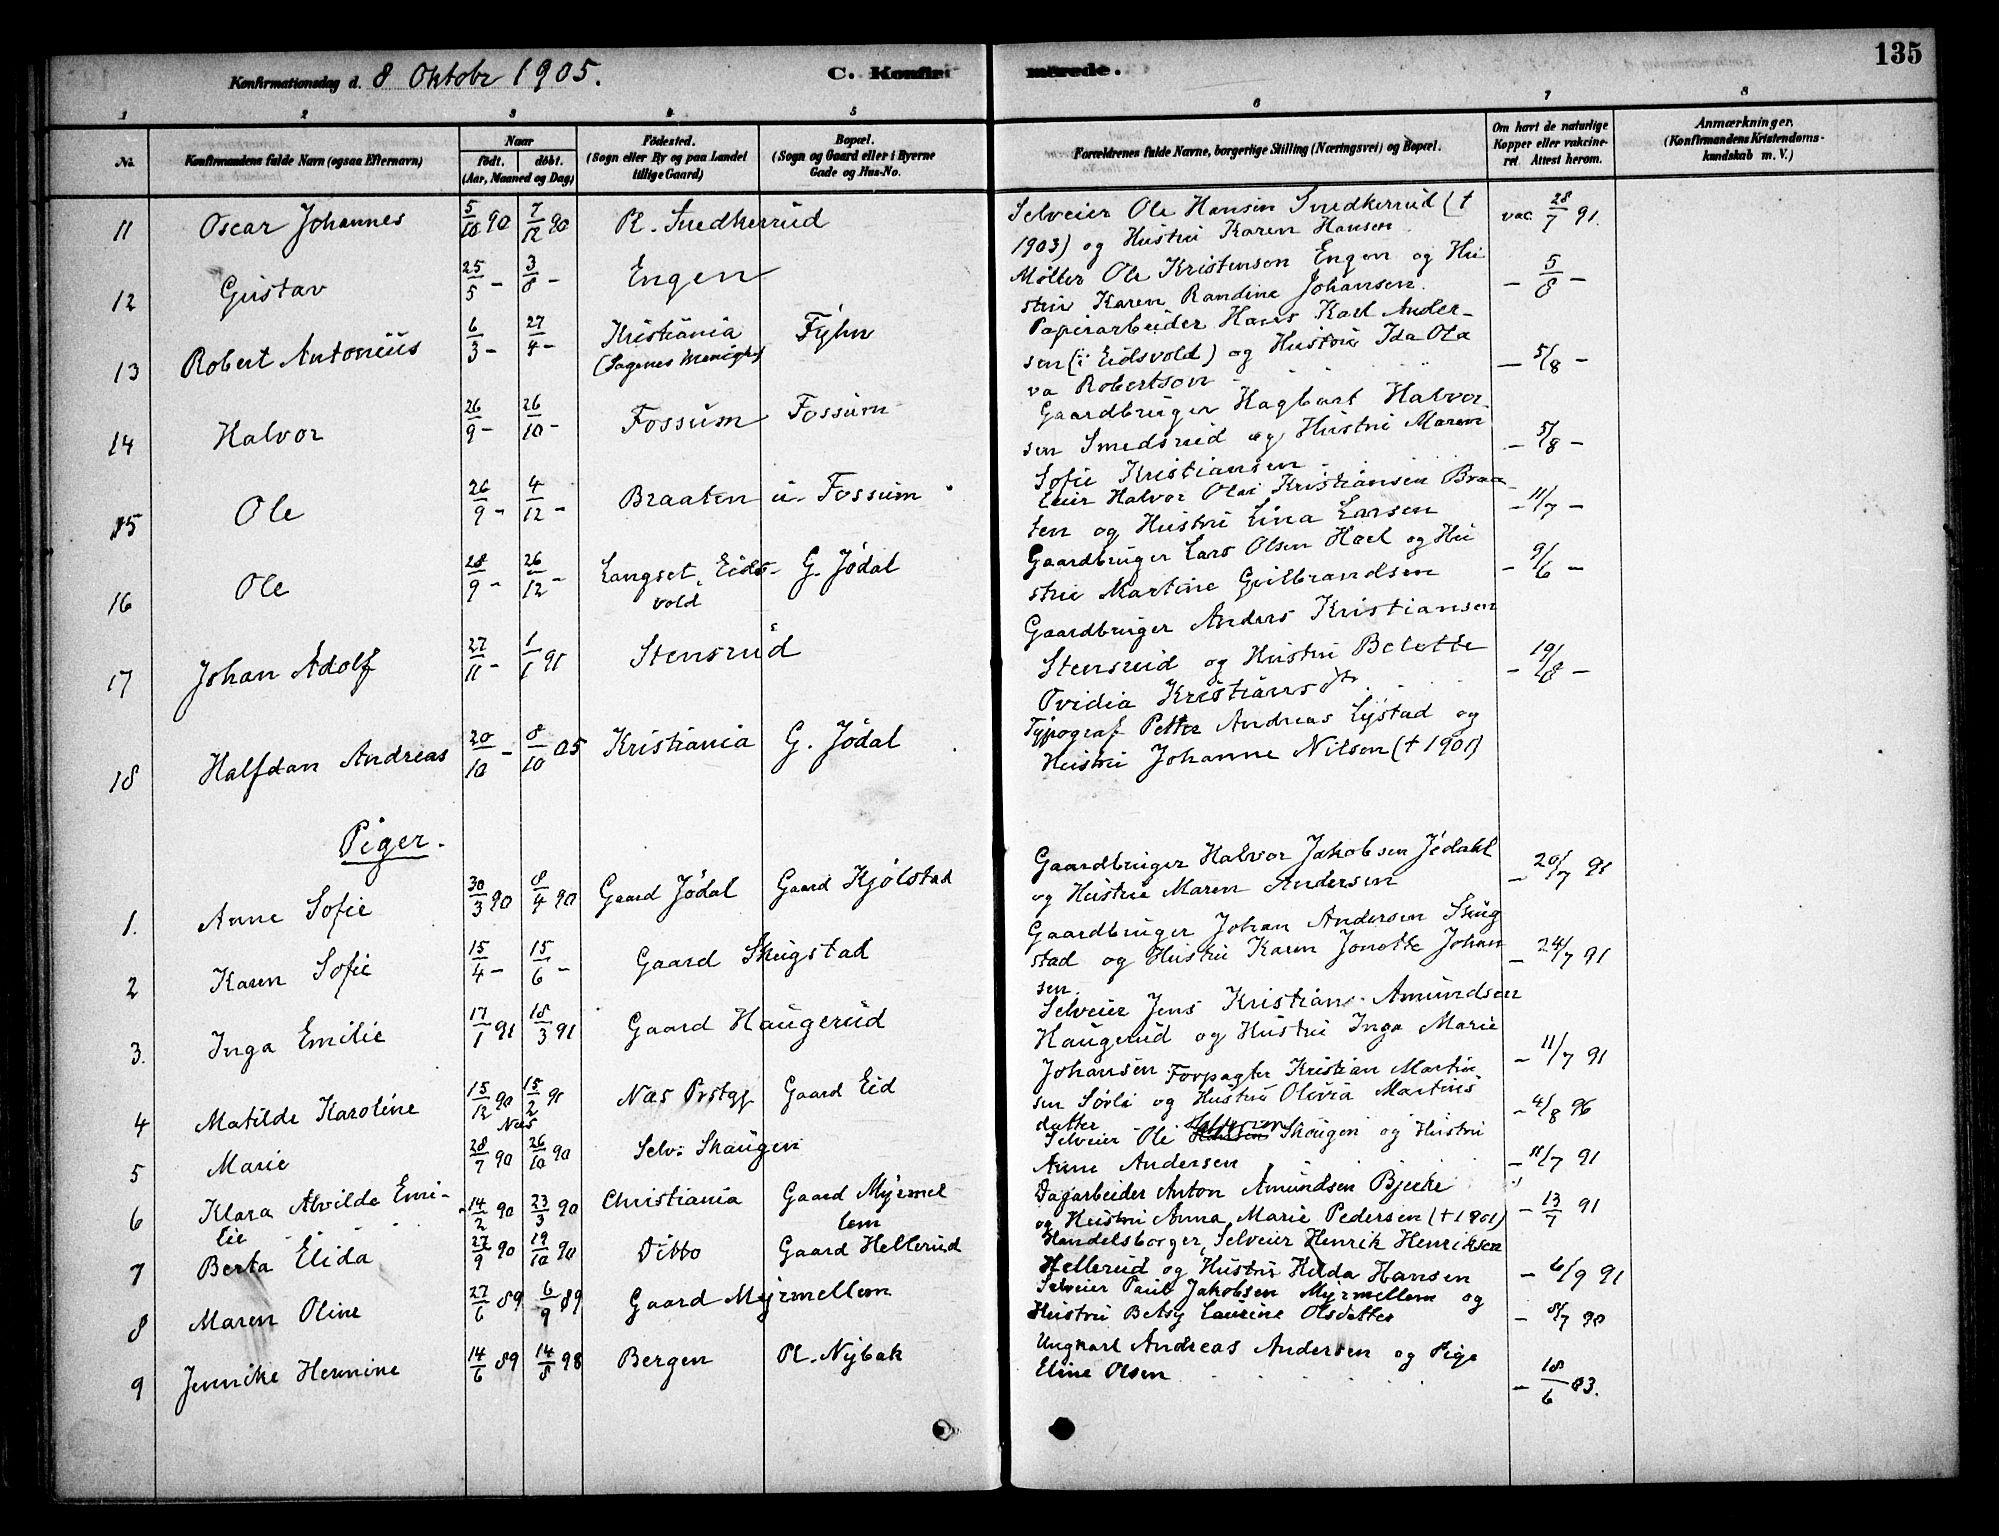 135
Konfirmationsdag d. 8 Oktobr 1905. C. Konfirmerede.
1 2 3 4 5 6 7 8
Nr. Konfirmandens fulde Navn (ogsaa Efternavn) Naar født. døbt. (Aar, Maaned og Dag) Födested. (Sogn eller By og paa Landet tillige Gaard) Bopæl. (Sogn og Gaard eller i Byerne Gade og Hus-No. Forældrenes fulde Navne, borgerlige Stilling (Næringsvei) og Bopæl. Om havt de naturlige Kopper eller vakcineret. Attest herom. Anmærkninger. (Konfirmandens Kristendomskundskab m. V.)
11 Oscar Johannes 5/10 90 7/12 90 Pl. Snedkerrud Selveier Ole Hansen Snedkerrud († vac 28/7 91.
1903) og Hustru Karen Hansen
12 Gustav 25/5 - 3/8 - Engen Møller Ole Kristensen Engen og Hu - 5/8 -
stru Karen Randine Johansen.
13 Robert Antonius 6/3 - 27/4 - Kristiania (Sagenes Menighd) Fyhn Papirarbeider Hans Karl Ander-
sen (i Eidsvold) og Hustru Ida Ola - 5/8 -
va Robertson
14 Halvor 26/9 - 26/10 - Fossum Fossum Gaardbruger Hagbart Halvor
sen Smedsrud og Hustru Maren - 5/8 -
Sofie Kristiansen
15 Ole 26/9 - 4/12 - Braaten u. Fossum Leier Halvor Olai Kristiansen Braa - 11/7 -
ten og Hustru Lina Larsen
16 Ole 28/9 - 26/12 - Langset, Eidsvold G. Jødal Gaardbruger Lars Olsen Hael og Hu - 9/6 -
stru Martine Gulbrandsen
17 Johan Adolf 27/11 - 1/1 91 Stensrud Gaardbruger Anders Kristiansen
Stensrud og Hustru Belette - 19/8 -
Ovidia Kristiansdtr.
18 Halfdan Andreas 20/10 - 8/10 05 Kristiania G. Jødal Typograf Petter Andreas Lystad og
Hustru Johanne Nilsen († 1901)
Piger.
1. Anne Sofie 30/3 90 8/4 90 Gaard Jødal Gaard Kjølstad Gaardbruger Halvor Jakobsen Jødahl - 20/7 91
og Hustru Maren Andersen
2 Karen Sofie 15/4 - 15/6 - Gaard Skugstad Gaardbruger Johan Andersen Skug
stad og Hustru Karen Jonette Johan - 24/7 91
sen.
3. Inga Emilie 17/1 91 18/3 91 Gaard Haugerud Selveier Jens Kristian Amundsen
Haugerud og Hustru Inga Marie
Johansen - 11/7 91
4 Matilde Karoline 15/12 90 15/2 91 Næs Prstgj Gaard Eid Forpagter Kristian Martin
sen Sørli og Hustru Olivia Martins - 4/8 96
datter
5 Marie Næs 28/7 90 26/10 90 Selv: Skaugen Selveier Ole Skaugen og Hustru
Anne Andersen - 11/7 91
6 Klara Alvilde Emilie 14/2 90 23/3 90 Christiania Gaard Myrmellem Dagarbeider Anton Amundsen Bjerke
og Hustru Anna Marie Pedersen († 1901) - 13/7 91
7 Berta Elida 27/9 90 19/10 90 Ditto Gaard Hellerud Handelsborger, Selveier Henrik Henriksen
Hellerud og Hustru Hilda Hansen - 6/9 91
8 Maren Oline 27/6 89 6/9 89 Gaard Myrmellem Selveier Paul Jakobsen Myrmellem og
Hustru Betsy Laurine Olsdatter - 8/7 90
9 Jennike Hermine 14/6 89 14/8 98 Bergen Pl. Nybak Ungkarl Andreas Andersen og Pige
Eline Olsen - 18/6 03.